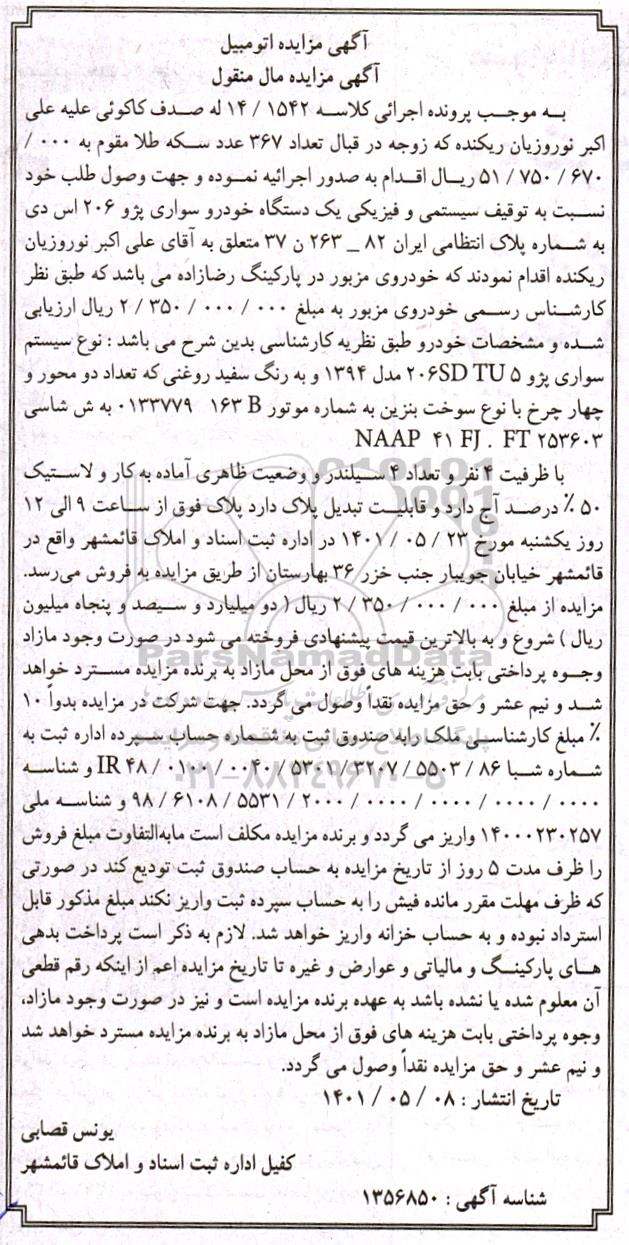 آگهی مزایده اتومبیل
آگهی مزایده مال منقول
به موجب پرونده اجرائی کلاسه ۱۵۴۲ / ۱۴ له صدف کاکوئی علیه علی
اکبر نوروزیان ریکنده که زوجه در قبال تعداد ۳۶۷ عدد سکه طلا مقوم به ۰۰۰ /
۶۷۰ / ۷۵۰ / ۵۱ ریال اقدام به صدور اجرائیه نموده و جهت وصول طلب خود
نسبت به توقیف سیستمی و فیزیکی یک دستگاه خودرو سواری پژو ۲۰۶ اس دی
به شماره پلاک انتظامی ایران ۸۲ _ ۲۶۳ ن ۳۷ متعلق به آقای علی اکبر نوروزیان
ریکنده اقدام نمودند که خودروی مزبور در پارکینگ رضازاده می باشد که طبق نظر
کارشناس رسمی خودروی مزبور به مبلغ ۰۰۰ / ۰۰۰ / ۳۵۰ / ۲ ریال ارزیابی
شده و مشخصات خودرو طبق نظریه کارشناسی بدین شرح می باشد : نوع سیستم
سواری پژو ۲۰۶SD TU ۵ مدل ۱۳۹۴ و به رنگ سفید روغنی که تعداد دو محور و
چهار چرخ با نوع سوخت بنزین به شماره موتور ۱۶۳ B ۰۱۳۳۷۷۹ به ش شاسی
NAAP ۴۱ FJ . FT ۲۵۳۶۰۳
با ظرفیت ۴ نفر و تعداد ۴ سیلندر و وضعیت ظاهری آماده به کار و لاستیک
۵۰ ٪ درصد آج دارد و قابلیت تبدیل پلاک دارد پلاک فوق از ساعت ۹ الی ۱۲
روز یکشنبه مورخ ۲۳ / ۰۵ / ۱۴۰۱ در اداره ثبت اسناد و املاک قائمشهر واقع در
قائمشهر خیابان جویبار جنب خزر ۳۶ بهارستان از طریق مزایده به فروش می‌رسد.
مزایده از مبلغ ۰۰۰ / ۰۰۰ / ۳۵۰ / ۲ ریال ( دو میلیارد و سیصد و پنجاه میلیون
ریال ) شروع و به بالاترین قیمت پیشنهادی فروخته می شود در صورت وجود مازاد
وجوه پرداختی بابت هزینه های فوق از محل مازاد به برنده مزایده مسترد خواهد
شد و نیم عشر و حق مزایده نقداً وصول می گردد. جهت شرکت در مزایده بدواً ۱۰
٪ مبلغ کارشناسی ملک رابه صندوق ثبت به شماره حساب سپرده اداره ثبت به
شماره شبا ۸۶ / ۵۵۰۳ / ۳۲۰۷ / ۵۳۰۱ / ۰۰۴۰ / ۰۱۰۰ / IR ۴۸ و شناسه
۰۰۰۰ / ۰۰۰۰ / ۰۰۰۰ / ۲۰۰۰ / ۵۵۳۱ / ۶۱۰۸ / ۹۸ و شناسه ملی
۱۴۰۰۰۲۳۰۲۵۷ واریز می گردد و برنده مزایده مکلف است مابه‌التفاوت مبلغ فروش
را ظرف مدت ۵ روز از تاریخ مزایده به حساب صندوق ثبت تودیع کند در صورتی
که ظرف مهلت مقرر مانده فیش را به حساب سپرده ثبت واریز نکند مبلغ مذکور قابل
استرداد نبوده و به حساب خزانه واریز خواهد شد. لازم به ذکر است پرداخت بدهی
های پارکینگ و مالیاتی و عوارض و غیره تا تاریخ مزایده اعم از اینکه رقم قطعی
آن معلوم شده یا نشده باشد به عهده برنده مزایده است و نیز در صورت وجود مازاد،
وجوه پرداختی بابت هزینه های فوق از محل مازاد به برنده مزایده مسترد خواهد شد
و نیم عشر و حق مزایده نقداً وصول می گردد.
تاریخ انتشار : ۰۸ / ۰۵ / ۱۴۰۱
یونس قصابی
کفیل اداره ثبت اسناد و املاک قائمشهر
شناسه آگهی : ۱۳۵۶۸۵۰
ParsNamadData
۰۲۱-۸۸۳۴۹۶۷۰-۵